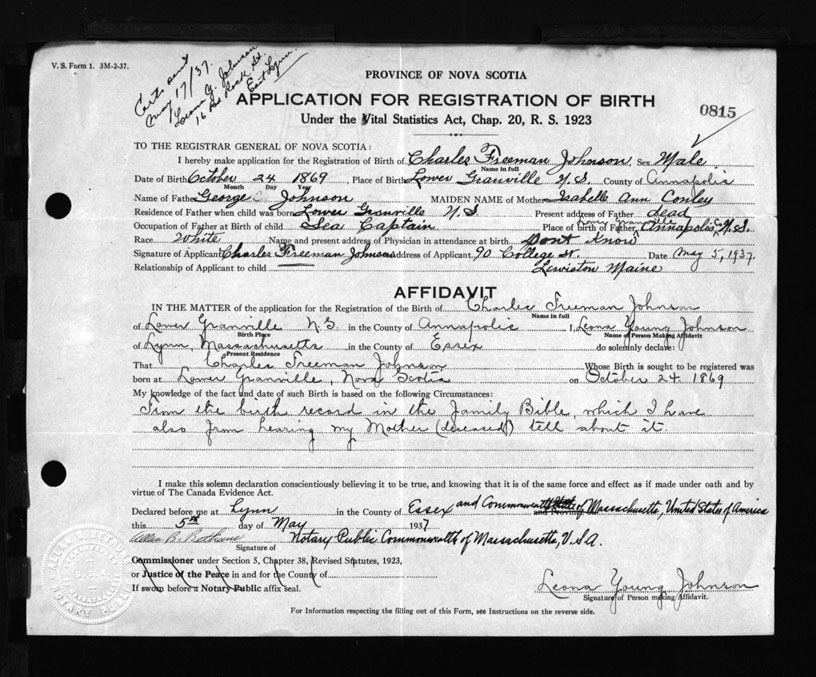 V. S. Form 1. 3M-2-37.
Certs sent
May 17/37.
Leona Y. Johnson
16 Red Rock St.
East Lynn.
PROVINCE OF NOVA SCOTIA
APPLICATION FOR REGISTRATION OF BIRTH
0815
Under the Vital Statistics Act, Chap. 20, R. S. 1923
TO THE REGISTRAR GENERAL OF NOVA SCOTIA:
I hereby make application for the Registration of Birth of Charles Freeman Johnson Sex Male
Name in full
Date of Birth October 24 1869, Place of Birth Lower Granville N.S. County of Annapolis
Month Day Year
Name of Father George Johnson MAIDEN NAME of Mother Isabelle Ann Conley
Residence of Father when child was born Lower Granville N.S Present address of Father dead
Occupation of Father at Birth of child Sea Captain Place of birth of Father Lower Granville Annapolis Co. N.S.
Race White Name and present address of Physician in attendance at birth Dont Know
Signature of Applicant Charles Freeman Johnson Address of Applicant 90 College St. Date May 5, 1937
Relationship of Applicant to child Lewiston Maine
AFFIDAVIT
IN THE MATTER of the application for the Registration of the Birth of Charles Freeman Johnson
Name in full
of Lower Granville N.S. in the County of Annapolis I, Leona Young Johnson
Birth Place Name of Person Making Affidavit
of Lynn, Massachusetts in the County of Essex do solemnly declare:
Present Residence
That Charles Freeman Johnson Whose Birth is sought to be registered was
born at Lower Granville, Nova Scotia on October 24 1869
My knowledge of the fact and date of such Birth is based on the following Circumstances:
From the birth record in the Family Bible, which I have
also from hearing my Mother (deceased) tell about it.
I make this solemn declaration conscientiously believing it to be true, and knowing that it is of the same force and effect as if made under oath and by
virtue of The Canada Evidence Act.
Declared before me at Lynn in the County of Essex and Commonwealth of Massachusetts, United States of America
this 5th day of May 1937
Notary Public Commonwealth of Massachusetts, U.S.A.
Signature of
Commissioner under Section 5, Chapter 38, Revised Statutes, 1923,
or Justice of the Peace in and for the County of
If sworn before a Notary Public affix seal.
Leona Young Johnson
Signature of Person making Affidavit.
For Information respecting the filling out of this Form, see Instructions on the reverse side.
NOTARY PUBLIC